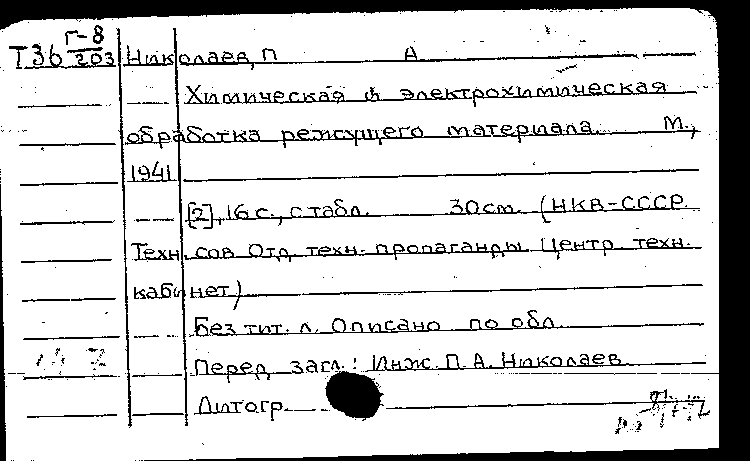 Г-8
Т36 203 Николаев, П А
Химическая и электрохимическая
обработка режущего материала. М.,
1941
[2], 16 с., с табл. 30 cm. (НКВ-СССР
Техн. сов Отд. техн. пропаганды Центр. техн.
кабинет)
Без тит. л. Описано по обл.
Перед загл.: Инж. П. А. Николаев
Литогр.